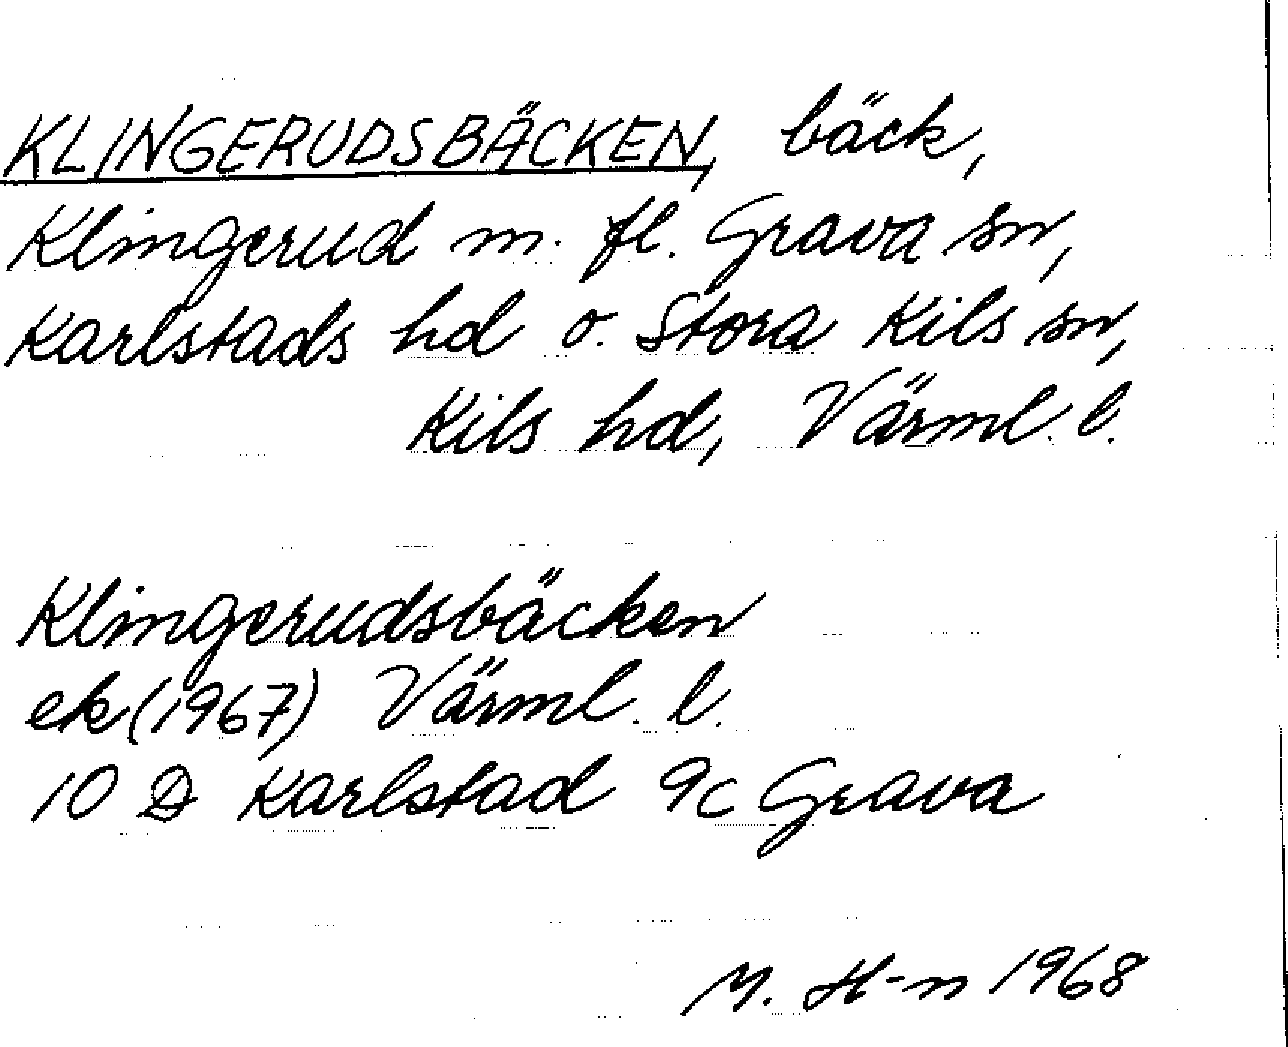 KLINGERUDSBÄCKEN, bäck,
Klingerud m. fl. Grava sn,
Karlstads hd o. Stora Kils sn,
Kils hd, Värml. l.
Klingerudsbäcken
ek (1967) Värml. l.
10 D Karlstad 9c Grava
M. H-n 1968